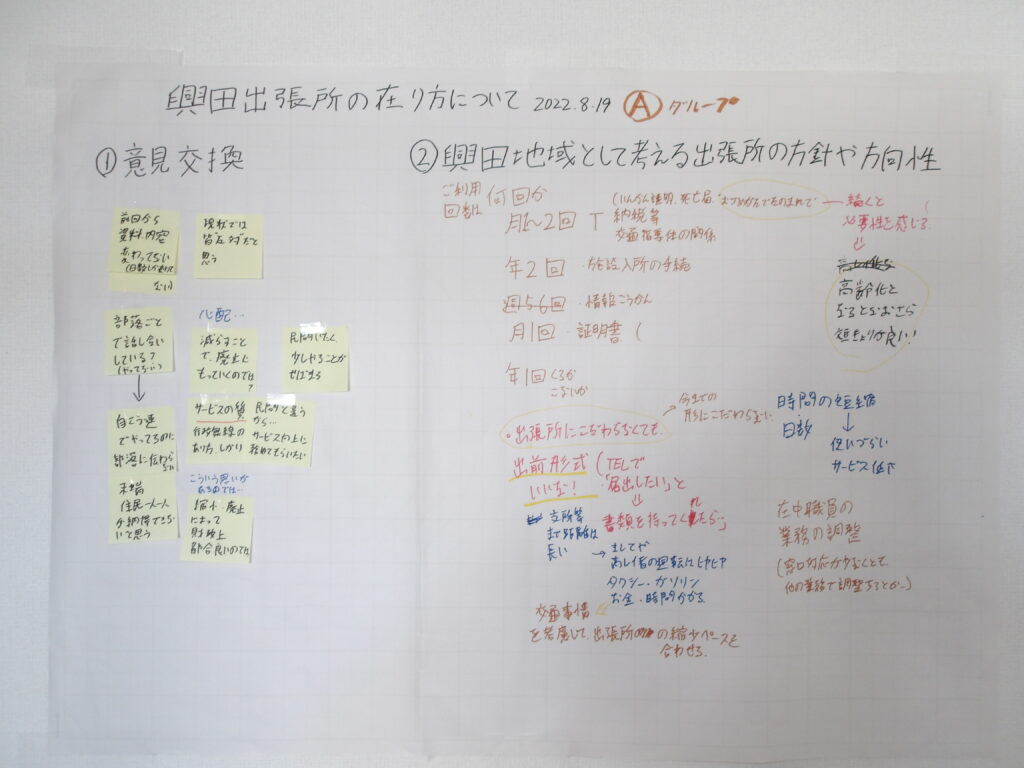 興田出張所の在り方について 2022.8.19 Ⓐグループ
①意見交換
前回から
資料内容
変わってない
(日数しか
ない)
現状では
皆反対だと
思う
部落ごと
で話し合い
している?
(やってない)
自こう連
でやってるのに
部落に伝わら
ない
末端
住民一人一人
が納得できな
いで思う
心配…
減らすこと
で、廃止に
もっていくのでは?
少しやることが
サービスの質
行政無線の
あり方 しかり
民間と違う
から…
サービス向上に
努めてもらいたい
こういう思いが
あるのでは…
縮小・廃止
によって
財政上
都合良いのでは
②興田地域として考える出張所の方針や方向性
ご利用
回数は
何回か
月1〜2回
(いんかん証明、死亡届、
納税等
交通指導住の関係
働くと
必要性を感じる
↓
年2回 ・施設入所の手続
週5 6回 ・情報こうかん
月1回 ・証明書 (
年1回 くるか
こないか
高齢化と
なるとなおさら
短きょりが良い!
・出張所にこだわらなくても
→ 今までの
形にこだわらない
出前形式
いいな!
(TELで
「届出したい」と
書類を持ってくれたら…」
時間の短縮
・日数
↓
使いづらい
サービス低下
支所等
まで距離は
長い
→ ましてや
あし(雪の運転はヒヤヒヤ
タクシー・ガソリン
お金・時間かかる
交通事情
を考慮して、出張所の縮少ペースを
合わせる。
在中職員の
業務の調整
(窓口対応が少なくとて、
他の業務で調整するとか…)